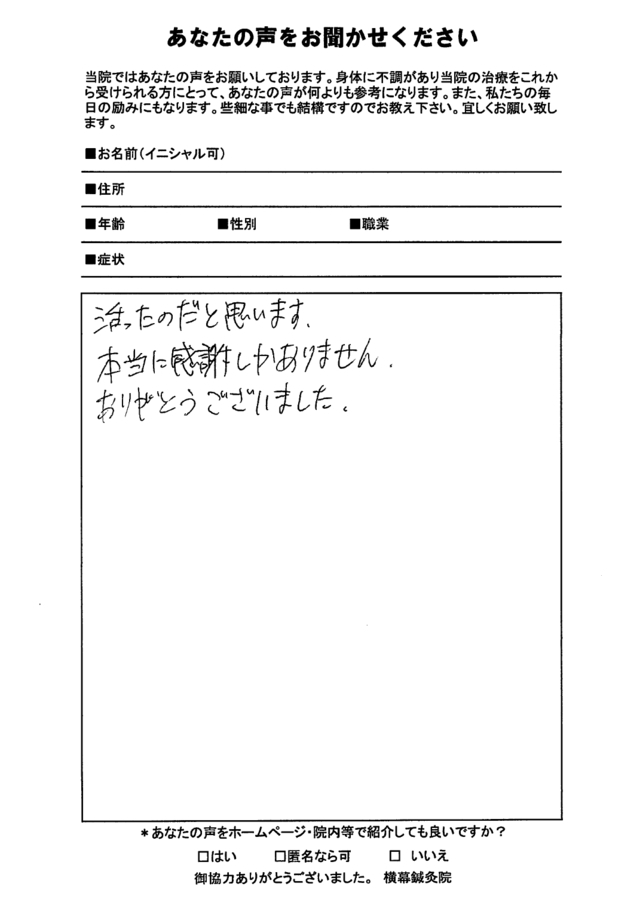 あなたの声をお聞かせください
当院ではあなたの声をお願いしております。身体に不調があり当院の治療をこれか
ら受けられる方にとって、あなたの声が何よりも参考になります。また、私たちの毎
日の励みにもなります。些細な事でも結構ですのでお教え下さい。宜しくお願い致し
ます。
■お名前(イニシャル可)
■住所
■年齢 ■性別 ■職業
■症状
治ったのだと思います。
本当に感謝しかありません。
ありがとうございました。
*あなたの声をホームページ・院内等で紹介しても良いですか?
□はい □匿名なら可 □ いいえ
御協力ありがとうございました。 横幕鍼灸院